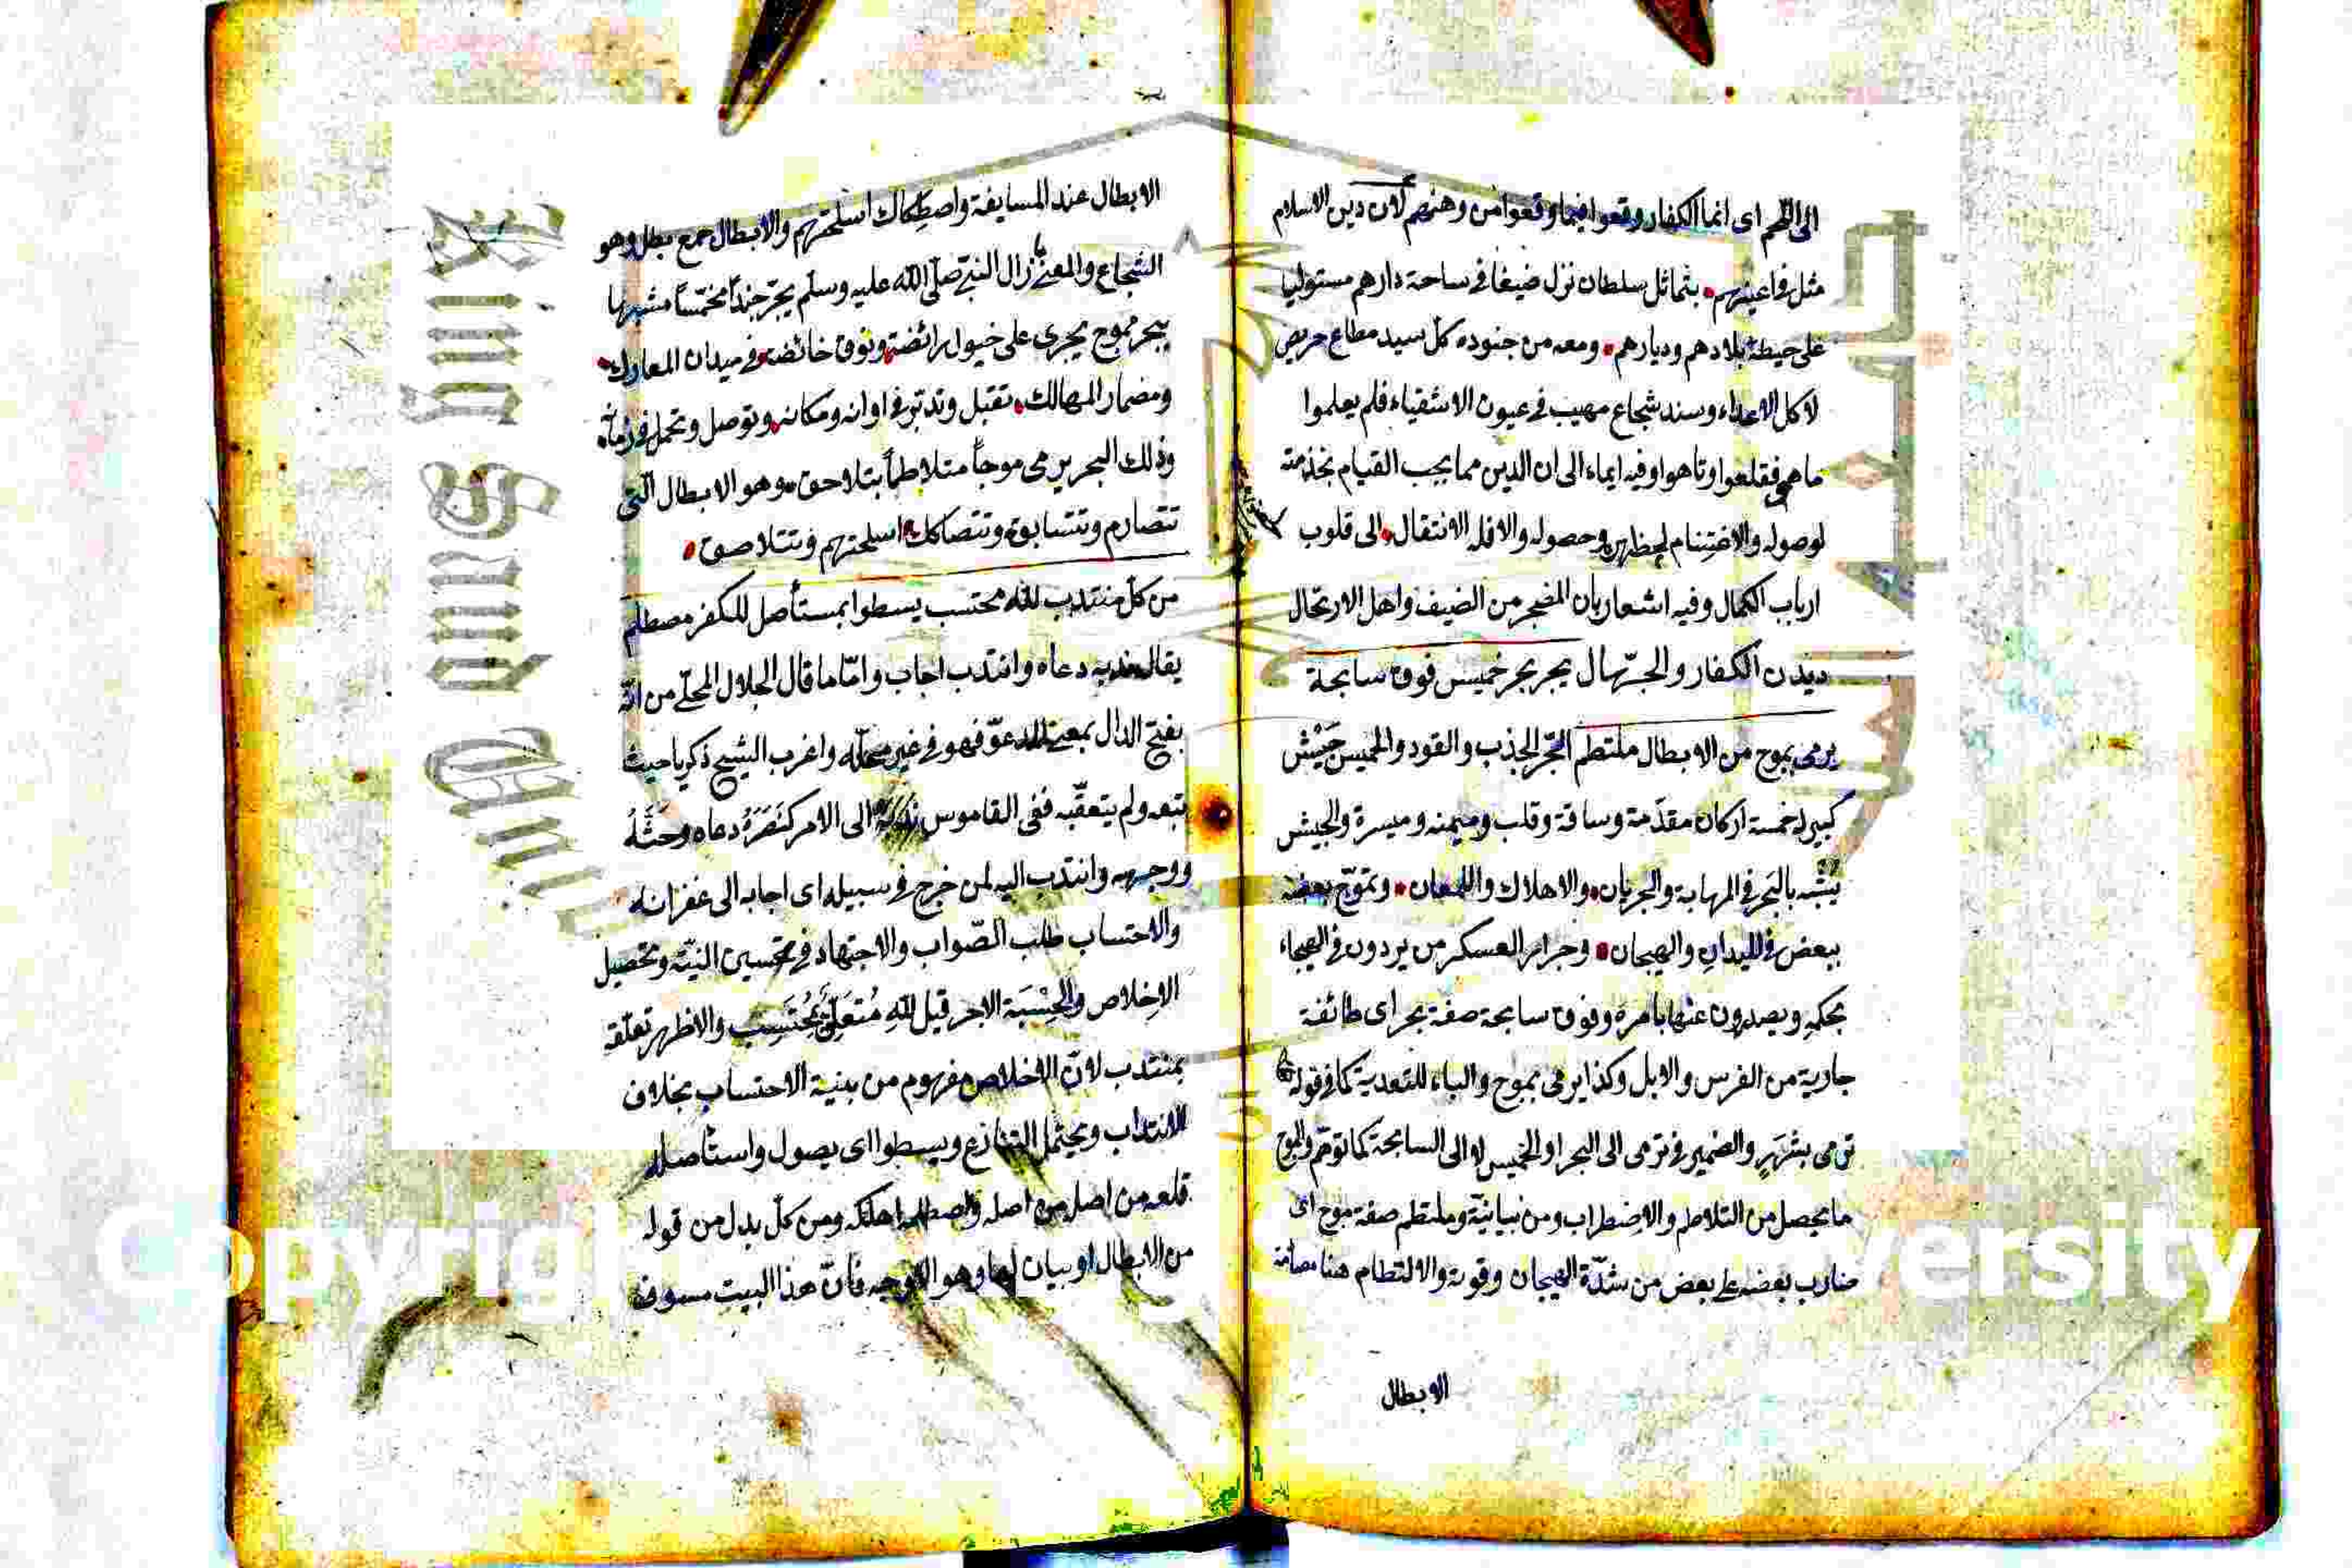 الى اللحم اى انما الكفار وقعوا فيما وقعوا من وهنهم لان دين الاسلام
مثل فى اعينهم بتماثل سلطان نزل ضيفا فى ساحة دارهم مستوليا
على حيطة بلادهم وديارهم ومعه من جنوده كل سيد مطاع حريص
لاكل الاعداء وسند شجاع مهيب فى عيون الاشقياء فلم يعلموا
ما هم فقلعوا وتاهوا وفيه ايماء الى ان الدين مما يجب القيام بخذمته
لوصوله والاغتنام وحصوله والا فله الانتقال الى قلوب
ارباب الكمال وفيه اشعار بان المضجر من الضيف واهل الارتحال
ديدن الكفار والجهال يجر بحر خميس فوق سابحة
يرمى بموج من الابطال ملتطم الجر الجذب والقود والخميس جيش
كبير له خمسة اركان مقدمة وساقة وقلب وميمنه وميسرة والجيش
يشبه بالبحر فى المهابة والجريان والاهلاك واللمعان وتموج بعضه
ببعض فى الميدان والهيجان وجرار العسكر من يردون فى الهيجاء
بحكمه ويصدرون عنها بامره وفوق سابحة صفة بحر اى طائفة
جارية من الفرس والابل وكذا يرمى بموج والباء للتعدية كما فى قوله
ترمى بشرر والضمير فى ترمى الى البحر او الخميس لا الى السابحة كما توهم والموج
ما يحصل من التلاطم والاضطراب ومن بيانية وملتطم صفة موج اى
ضارب بعضه على بعض من شدة الهيجان وقوته والالتطام هنا مصادمة
الابطال
الابطال عند المسايفة واصطكاك اسلحتهم والابطال جمع بطل وهو
الشجاع والمعنى ما زال النبى صلى الله عليه وسلم يجر جندا مخمسا مشبها
ببحر مموج يجرى على خيول رائضة ونوق خائضة فى ميدان المعارك
ومضمار المهالك تقبل وتدبر فى اوانه ومكانه وتوصل وتحمل فى زمانه
وذلك البحر يرمى موجا متلاطما يتلاحق وهو الابطال التى
تتصارم وتتسابق وتتصاكك اسلحتهم وتتلاصق
من كل منتدب لله محتسب يسطوا بمستأصل للكفر مصطلم
يقال ندبه دعاه وانتدب اجاب واما ما قال الجلال المحلى من انه
بفتح الدال بمعنى المدعو فهو فى غير محله واغرب الشيخ زكريا حيث
تبعه ولم يتعقبه ففى القاموس ندبه الى الامر كنصره دعاه وحثه
ووجهه وانتدب اليه لمن خرج فى سبيله اى اجابه الى غفرانه
والاحتساب طلب الصواب والاجتهاد فى تحسين النية وتحصيل
الاخلاص والحسبة الاجر قيل لله متعلق بمحتسب والاظهر تعلقه
بمنتدب لان الاخلاص مفهوم من بنية الاحتساب بخلاف
الانتداب ويحتمل التنازع ويسطوا اى يصول واستأصله
قلعه من اصله واصطلمه اهلكه ومن كل بدل من قوله
من الابطال او بيان لها وهو الاوجه فان هذا البيت مسوق